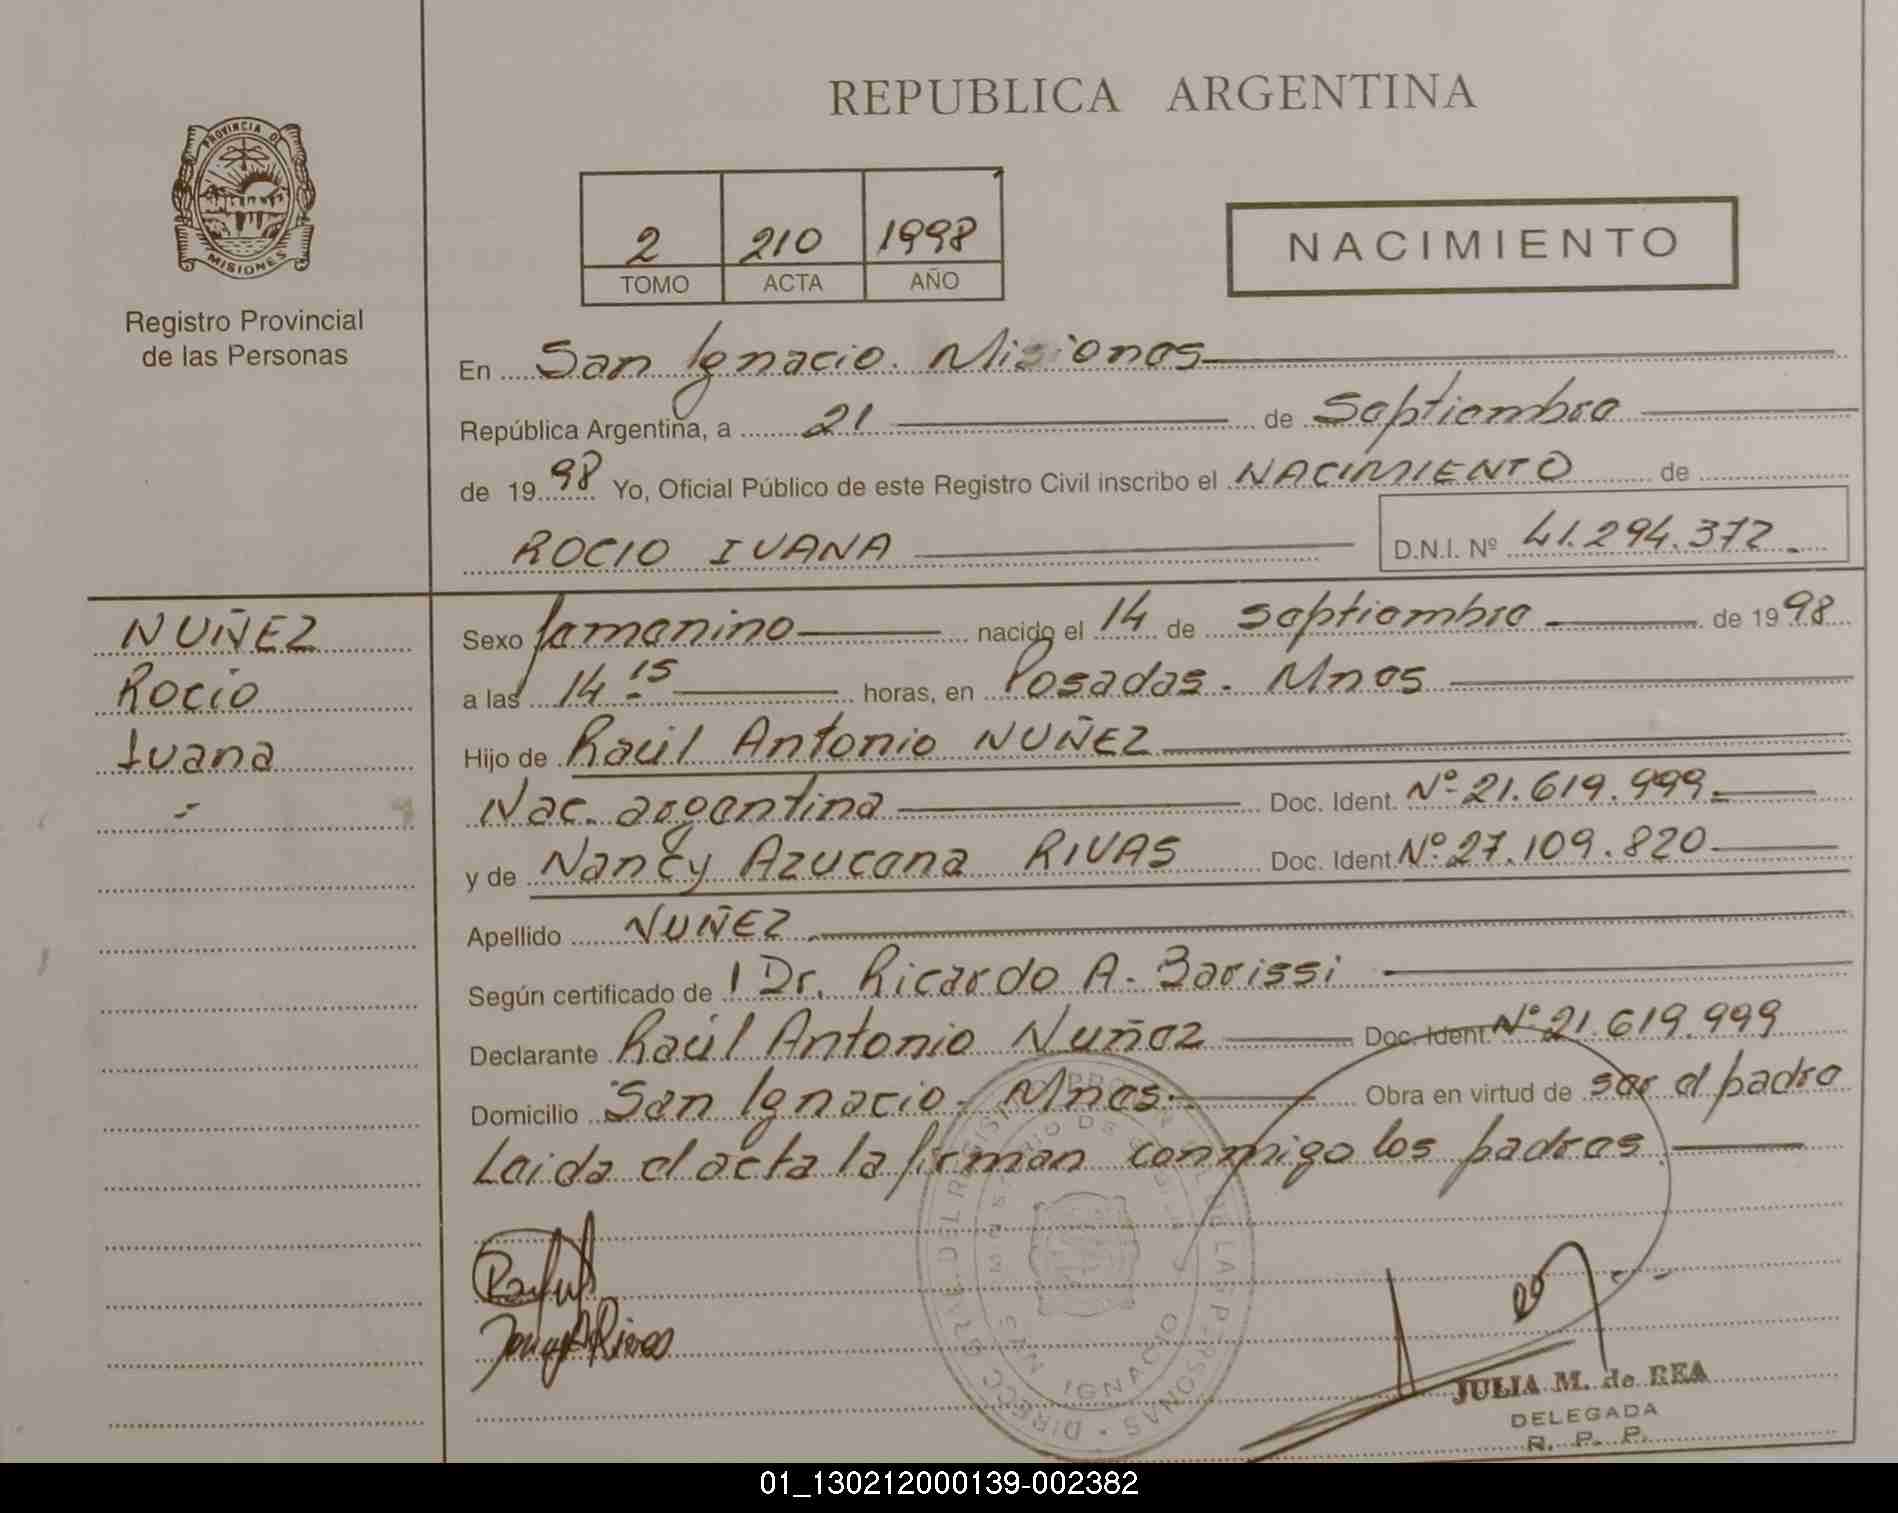 REPUBLICA ARGENTINA
PROVINCIA D
MISIONES
Registro Provincial
de las Personas
2 210 1998
TOMO ACTA AÑO
NACIMIENTO
En San Ignacio. Misiones
República Argentina, a 21 de Septiembre
de 1998 Yo, Oficial Público de este Registro Civil inscribo el NACIMIENTO de
ROCIO IVANA D.N.I. Nº 41.294.372.
NUÑEZ
Rocio
Ivana
Sexo femenino nacido el 14 de septiembre de 1998
a las 14.15 horas, en Posadas. Mnes
Hijo de Raúl Antonio NUÑEZ
Nac. argentina Doc. Ident. Nº 21.619.999.
y de Nancy Azucena RIVAS Doc. Ident. Nº 27.109.820
Apellido NUÑEZ
Según certificado de l Dr. Ricardo A. Barissi
Declarante Raúl Antonio Nuñez Doc. Ident. Nº 21.619.999
Domicilio San Ignacio. Mnes. Obra en virtud de ser el padre
Leida el acta la firman conmigo los padres.
SAN IGNACIO
JULIA M. de REA
DELEGADA
R. P. P.
01_130212000139-002382